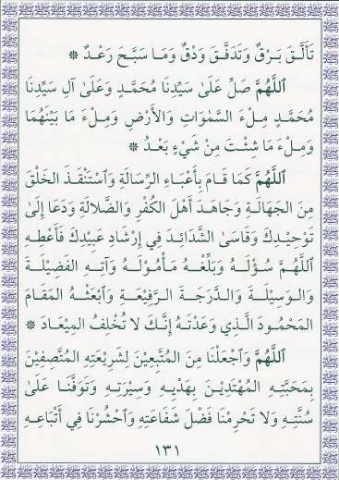 تَأَلَّقَ بَرْقٌ وَتَدَفَّقَ وَدْقٌ وَمَا سَبَّحَ رَعْدٌ ❊
اللَّهُمَّ صَلِّ عَلَىٰ سَيِّدِنَا مُحَمَّدٍ وَعَلَىٰ آلِ سَيِّدِنَا
مُحَمَّدٍ مِلْءَ السَّمٰوَاتِ وَالأَرْضِ وَمِلْءَ مَا بَيْنَهُمَا
وَمِلْءَ مَا شِئْتَ مِنْ شَيْءٍ بَعْدُ ❊
اللَّهُمَّ كَمَا قَامَ بِأَعْبَاءِ الرِّسَالَةِ وَاسْتَنْقَذَ الخَلْقَ
مِنَ الجَهَالَةِ وَجَاهَدَ أَهْلَ الكُفْرِ وَالضَّلالَةِ وَدَعَا إِلَىٰ
تَوْحِيدِكَ وَقَاسَىٰ الشَّدَائِدَ فِي إِرْشَادِ عَبِيدِكَ فَأَعْطِهِ
اللَّهُمَّ سُؤْلَهُ وَبَلِّغْهُ مَأْمُولَهُ وَآتِهِ الفَضِيلَةَ
وَالوَسِيلَةَ وَالدَّرَجَةَ الرَّفِيعَةَ وَابْعَثْهُ المَقَامَ
المَحْمُودَ الَّذِي وَعَدْتَهُ إِنَّكَ لا تُخْلِفُ المِيعَادَ ❊
اللَّهُمَّ وَاجْعَلْنَا مِنَ المُتَّبِعِينَ لِشَرِيعَتِهِ المُتَّصِفِينَ
بِمَحَبَّتِهِ المُهْتَدِينَ بِهَدْيِهِ وَسِيرَتِهِ وَتَوَفَّنَا عَلَىٰ
سُنَّتِهِ وَلا تَحْرِمْنَا فَضْلَ شَفَاعَتِهِ وَاحْشُرْنَا فِي أَتْبَاعِهِ
١٣١